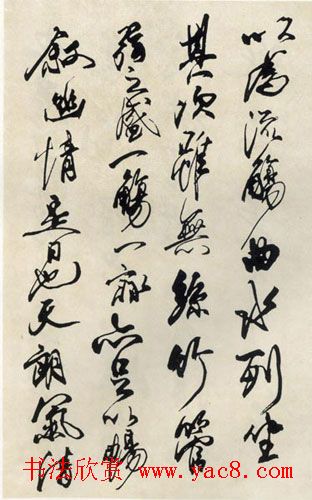 以為流觴曲水列坐
其次雖無絲竹管
弦之盛一觴一詠亦足以暢
敘幽情是日也天朗氣清
书法欣赏 www.yac8.com